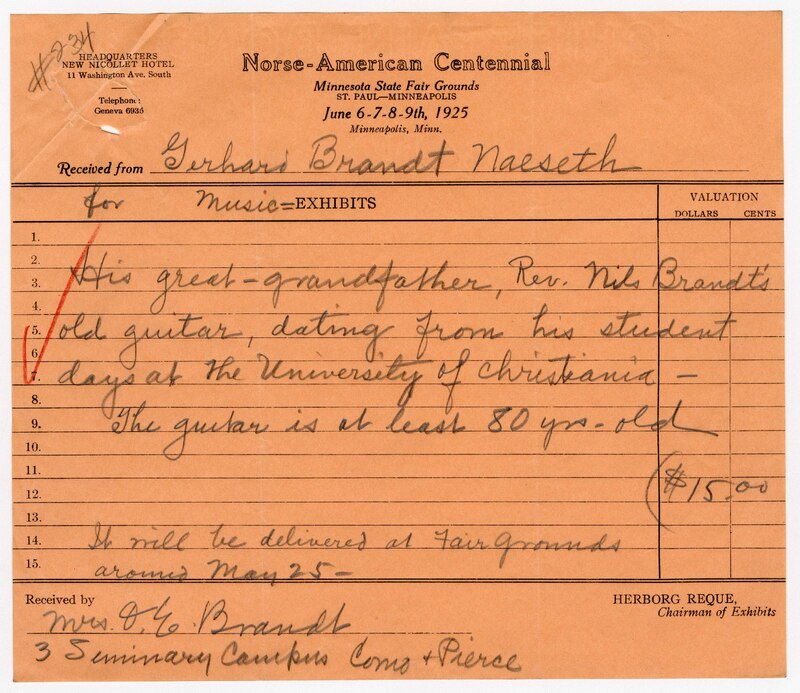 #234
HEADQUARTERS
NEW NICOLLET HOTEL
11 Washington Ave. South
Telephone:
Geneva 6935
Norse-American Centennial
Minnesota State Fair Grounds
ST. PAUL—MINNEAPOLIS
June 6-7-8-9th, 1925
Minneapolis, Minn.
Received from Gerhard Brandt Naeseth
for Music=EXHIBITS
VALUATION
DOLLARS CENTS
1.
2.
3. His great-grandfather, Rev. Nils Brandt's
4.
5. old guitar, dating from his student
6.
7. days at the University of Christiania –
8.
9. The guitar is at least 80 yrs-old
10.
11.
12. ($15.00
13.
14. It will be delivered at Fair Grounds
15. around May 25–
Received by
Mrs. O. E. Brandt
3 Seminary Campus Como + Pierce
HERBORG REQUE,
Chairman of Exhibits